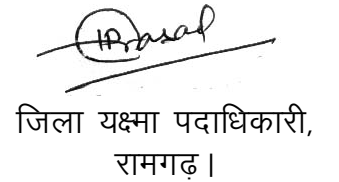 Prasad
जिला यक्ष्मा पदाधिकारी,
रामगढ़।